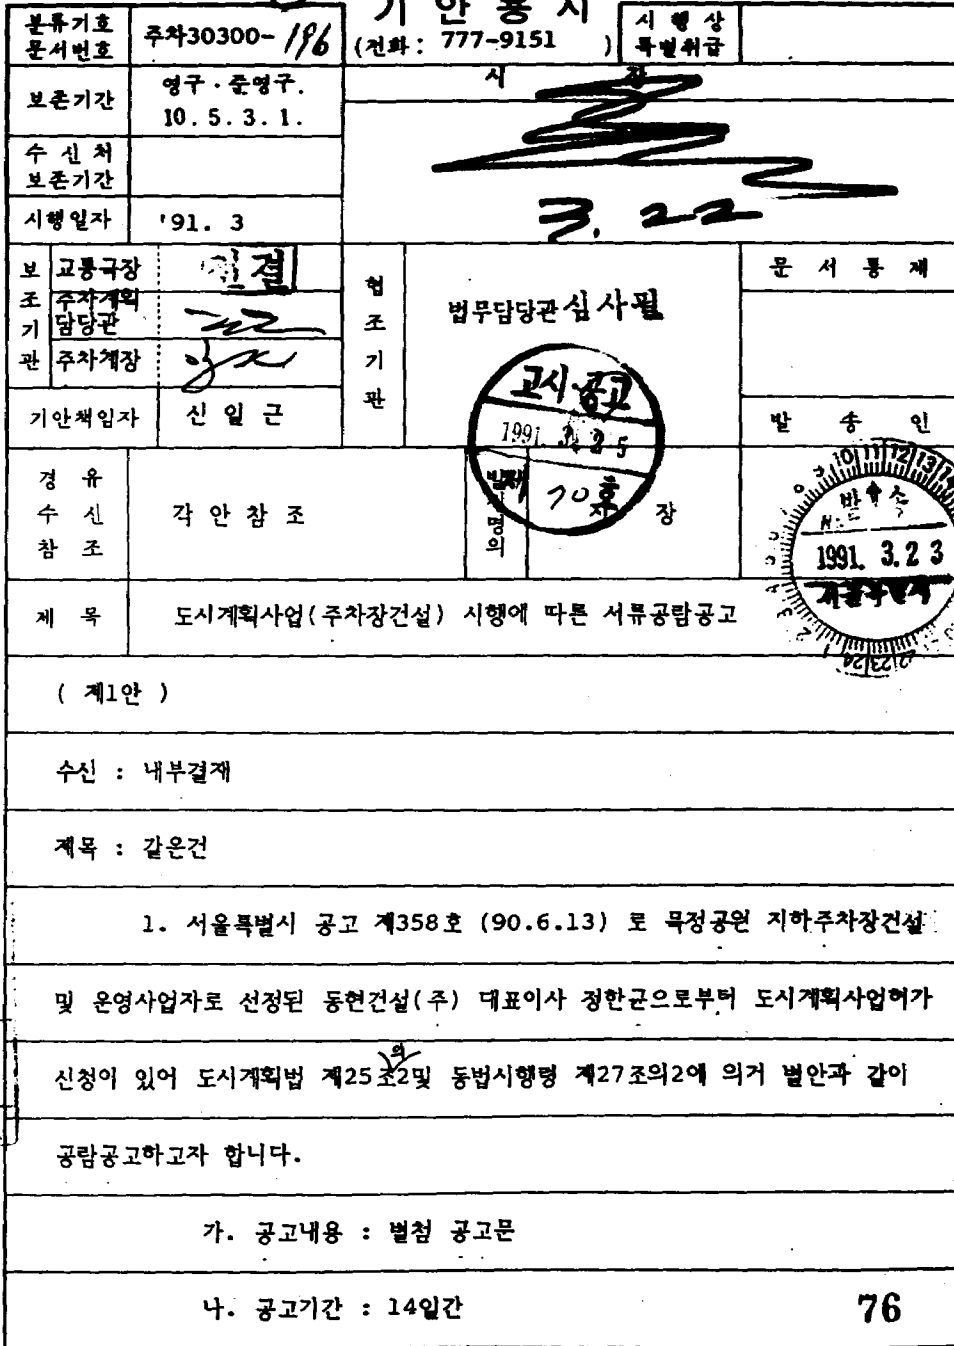 기안용지
분류기호
문서번호
주차30300-196
(전화 : 777-9151 )
시행상
특별취급
보존기간
영구·준영구.
10. 5. 3. 1.
시 장
수신처
보존기간
시행일자
'91. 3
3. 22
보조기관
교통국장
전결
주차계획
담당관
주차계장
기안책임자
신일근
협조기관
법무담당관 심사필
문서통제
발송인
고시·공고
1991. 3. 25
제 70호
경유
수신
참조
각안참조
발신명의
시장
발송
1991. 3. 23
서울특별시
제목
도시계획사업(주차장건설) 시행에 따른 서류공람공고
( 제1안 )
수신 : 내부결재
제목 : 같은건
1. 서울특별시 공고 제358호 (90.6.13) 로 묵정공원 지하주차장건설
및 운영사업자로 선정된 동현건설(주) 대표이사 정한균으로부터 도시계획사업허가
신청이 있어 도시계획법 제25조의2및 동법시행령 제27조의2에 의거 별안과 같이
공람공고하고자 합니다.
가. 공고내용 : 별첨 공고문
나. 공고기간 : 14일간
76